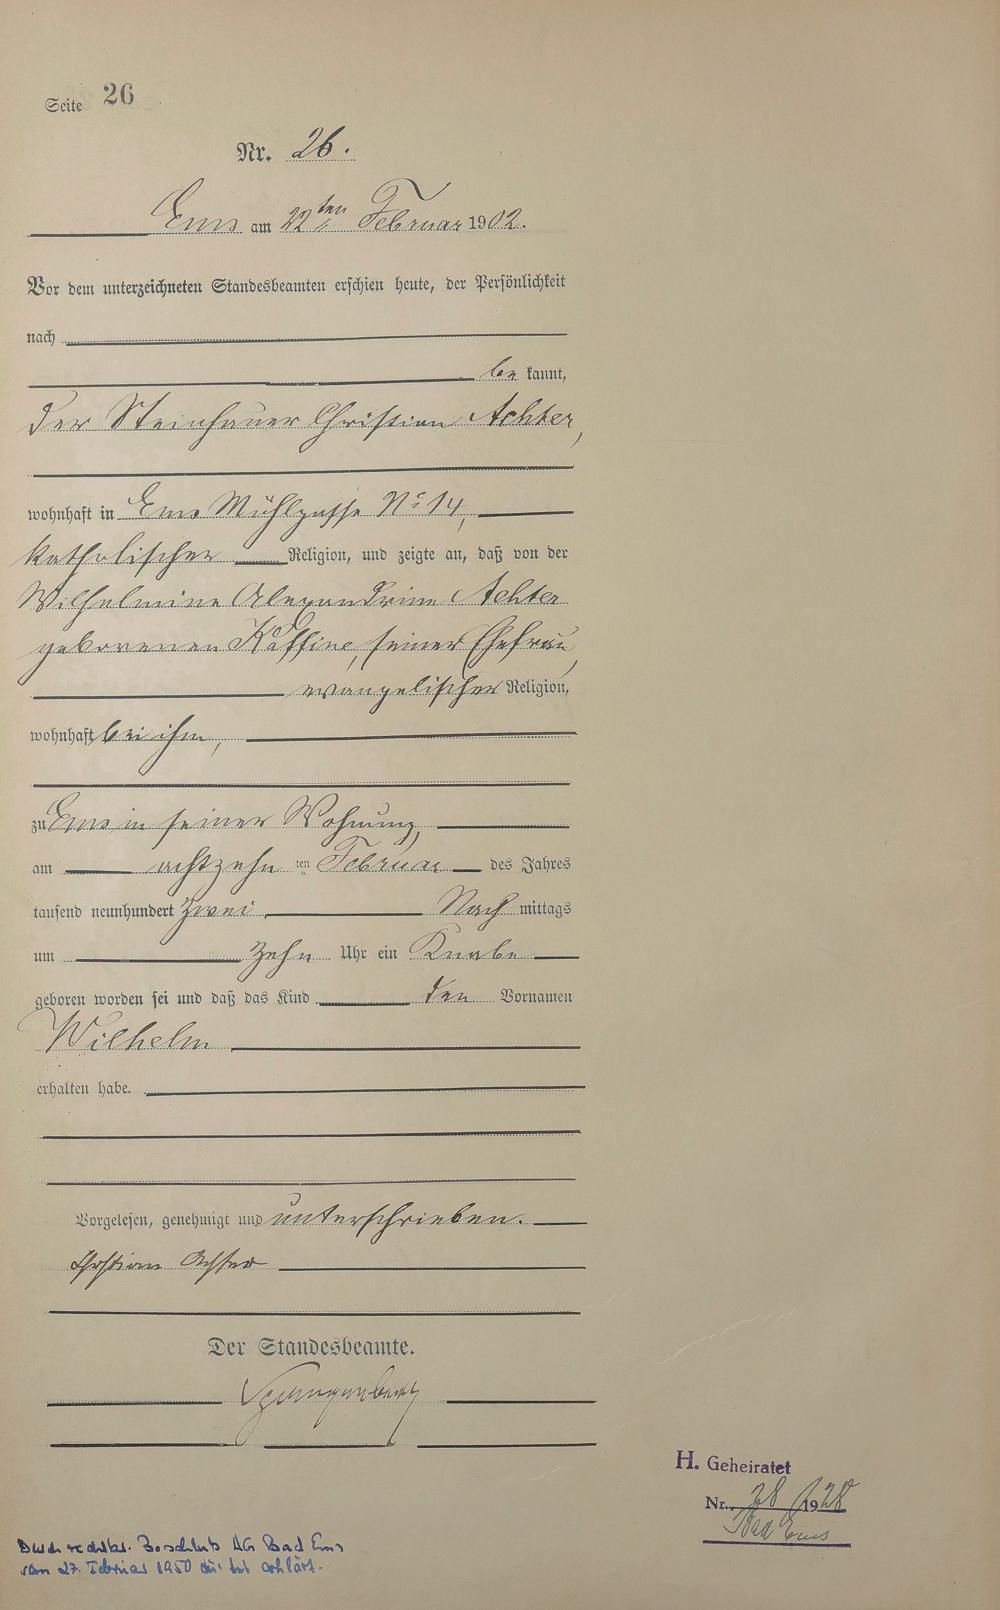 Seite 26
Nr. 26.
Ems am 22ten Februar 1902.
Vor dem unterzeichneten Standesbeamten erschien heute, der Persönlichkeit
nach
be kannt,
der Steinhauer Christian Achter,
wohnhaft in Ems Mühlgasse No 14,
katholischer Religion, und zeigte an, daß von der
Wilhelmine Alexandrine Achter
geborenen Kaffine, seiner Ehefrau,
evangelischer Religion,
wohnhaft bei ihm,
zu Ems in seiner Wohnung,
am achtzehn ten Februar des Jahres
tausend neunhundert zwei Nach mittags
um zehn Uhr ein Knabe
geboren worden sei und daß das Kind den Vornamen
Wilhelm
erhalten habe.
Vorgelesen, genehmigt und unterschrieben.
Christian Achter
Der Standesbeamte.
Spangenberg
H. Geheiratet
Nr. 28 1928
Bad Ems
Durch rechtskr. Beschluß AG Bad Ems
vom 27. Februar 1950 für tot erklärt.